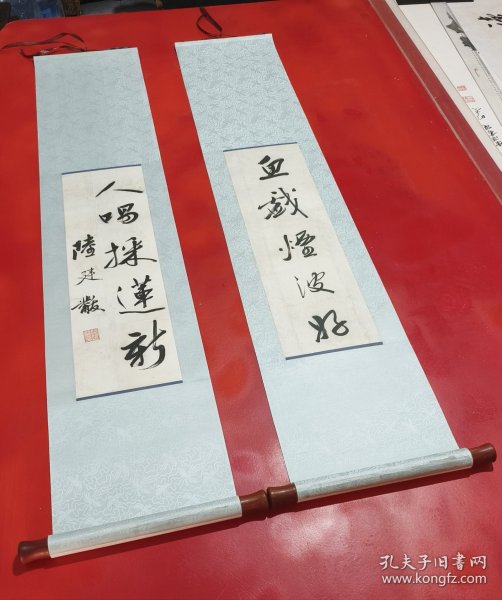 魚戲煙波好
人唱採蓮新
陸廷黻
孔夫子旧书网
www.kongfz.com